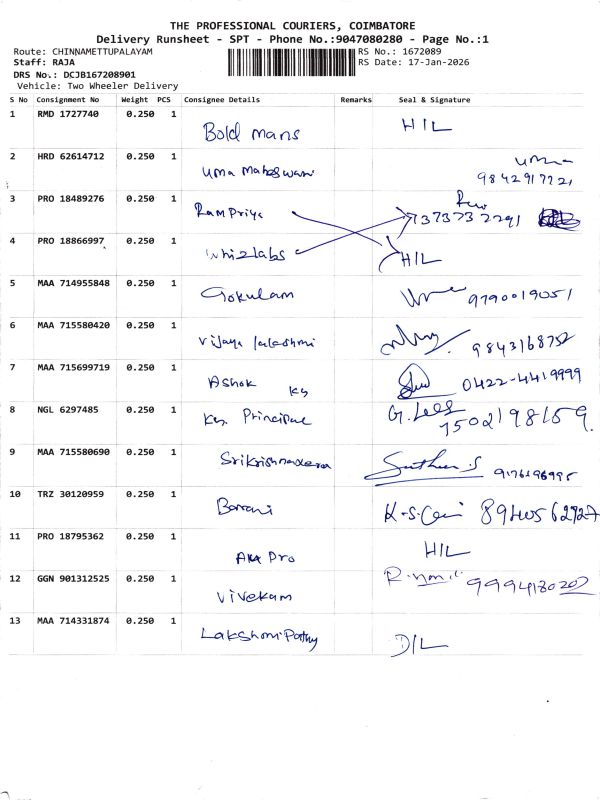 THE PROFESSIONAL COURIERS, COIMBATORE
Delivery Runsheet - SPT - Phone No.:9047080280 - Page No.:1
Route: CHINNAMETTUPALAYAM RS No.: 1672089
Staff: RAJA RS Date: 17-Jan-2026
DRS No.: DCJB167208901
Vehicle: Two Wheeler Delivery
S No Consignment No Weight PCS Consignee Details Remarks Seal & Signature
1 RMD 1727740 0.250 1 Bold mans HIL
2 HRD 62614712 0.250 1 Uma Maheswari Uma
9842917721
3 PRO 18489276 0.250 1 Ram Priya 7373732291
4 PRO 18866997 0.250 1 Whizlabs HIL
5 MAA 714955848 0.250 1 Gokulam 9790019051
6 MAA 715580420 0.250 1 Vijaya 984316875
7 MAA 715699719 0.250 1 Ashok 0422-4419999
8 NGL 6297485 0.250 1 Principal G.
7502198159
9 MAA 715580690 0.250 1 9176196995
10 TRZ 30120959 0.250 1 Barani K.S.
11 PRO 18795362 0.250 1 AKA Pro HIL
12 GGN 901312525 0.250 1 Vivekam 9994180202
13 MAA 714331874 0.250 1 Lakshmi Pathy D/L